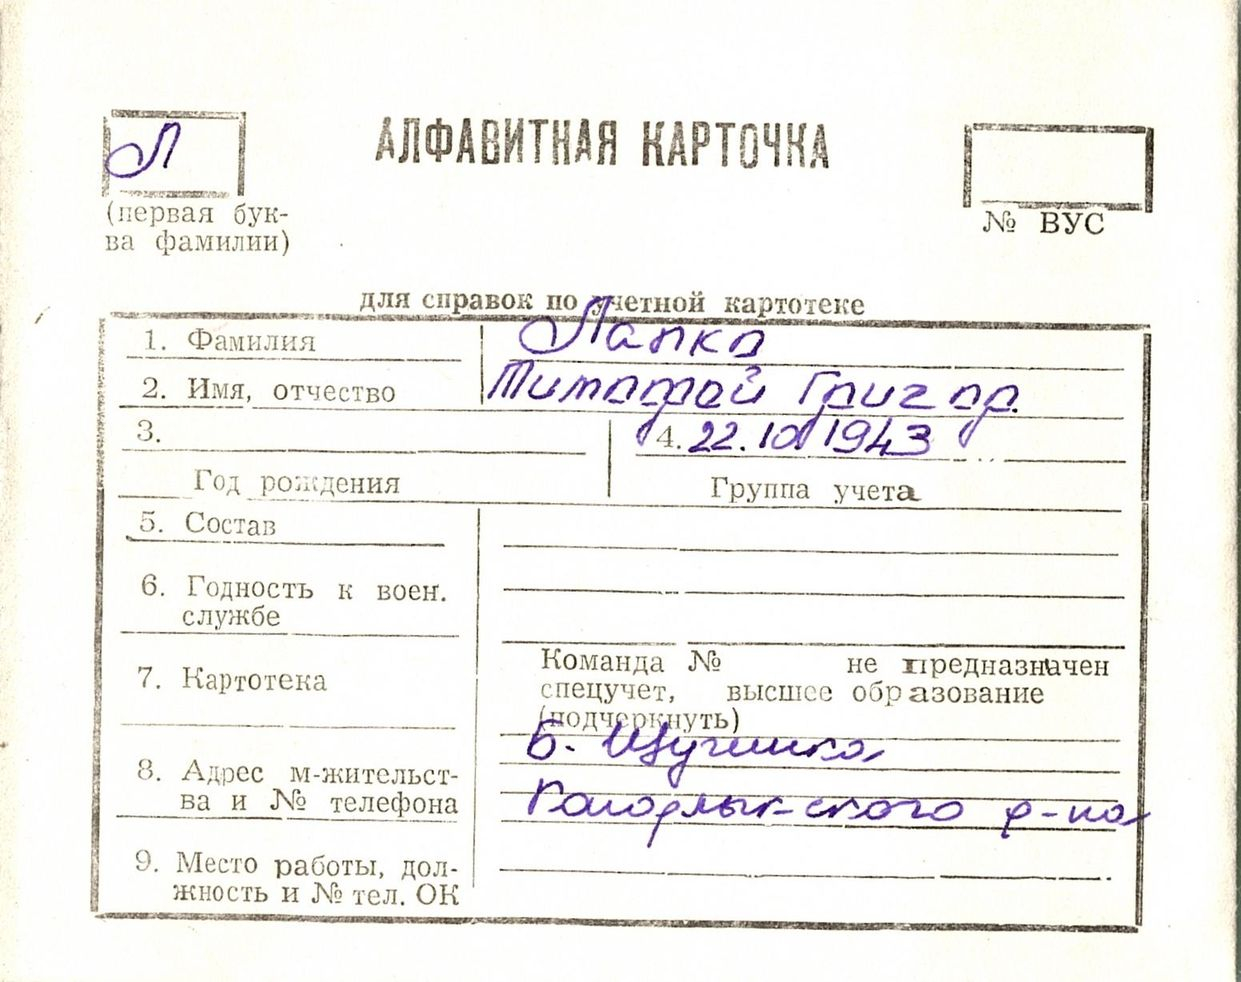 Л
АЛФАВИТНАЯ КАРТОЧКА
(первая бук-
ва фамилии)
№ ВУС
для справок по учетной картотеке
1. Фамилия Лапко
2. Имя, отчество Тимофей Григор.
3. 4. 22.10 1943
Год рождения Группа учета
5. Состав
6. Годность к воен.
службе
7. Картотека
Команда № не предназначен
спецучет, высшее образование
(подчеркнуть)
Б. Щучинка
8. Адрес м-жительст-
ва и № телефона
Кагарлык-ского р-на
9. Место работы, дол-
жность и № тел. ОК